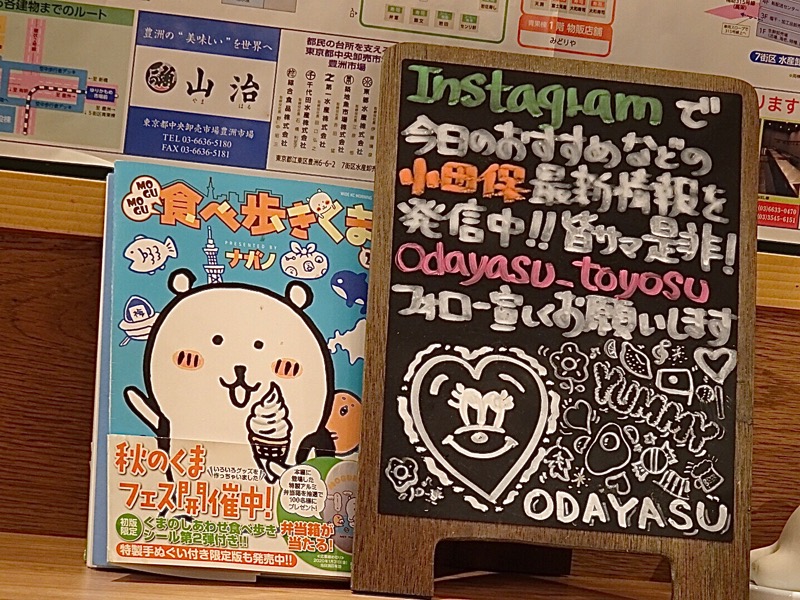 各建物までのルート
豊洲の"美味しい"を世界へ
山治
やま はる
東京都中央卸売市場豊洲市場
TEL 03-6636-5180
FAX 03-6636-5181
都民の台所を支え
東京都中央卸売市
豊洲市場
綜合食品株式会社
千代田水産株式会社
第一水産株式会社
築地魚市場株式会社
東京都江東区豊洲6-6-2 7街区水産卸
青果棟1階 物販店舗
みどりや
7街区 水産卸
(03)6633-0470
(03)3545-6151
MOGU
MOGU
食べ歩きくま
PRESENTED BY
ナガノ
梅
秋のくま
フェス開催中!
いろいろグッズを
作っちゃいました
本編に
登場した
特製アルミ
弁当箱を抽選で
100名様に
プレゼント!
初版
限定
くまのしあわせ食べ歩き
シール第2弾付き!!
弁当箱が
当たる!
特製手ぬぐい付き限定版も発売中!!
Instagramで
今日のおすすめなどの
小田保最新情報を
発信中!!皆サマ是非!
Odayasu_toyosu
フォロー宜しくお願いします
YUMMY
ODAYASU